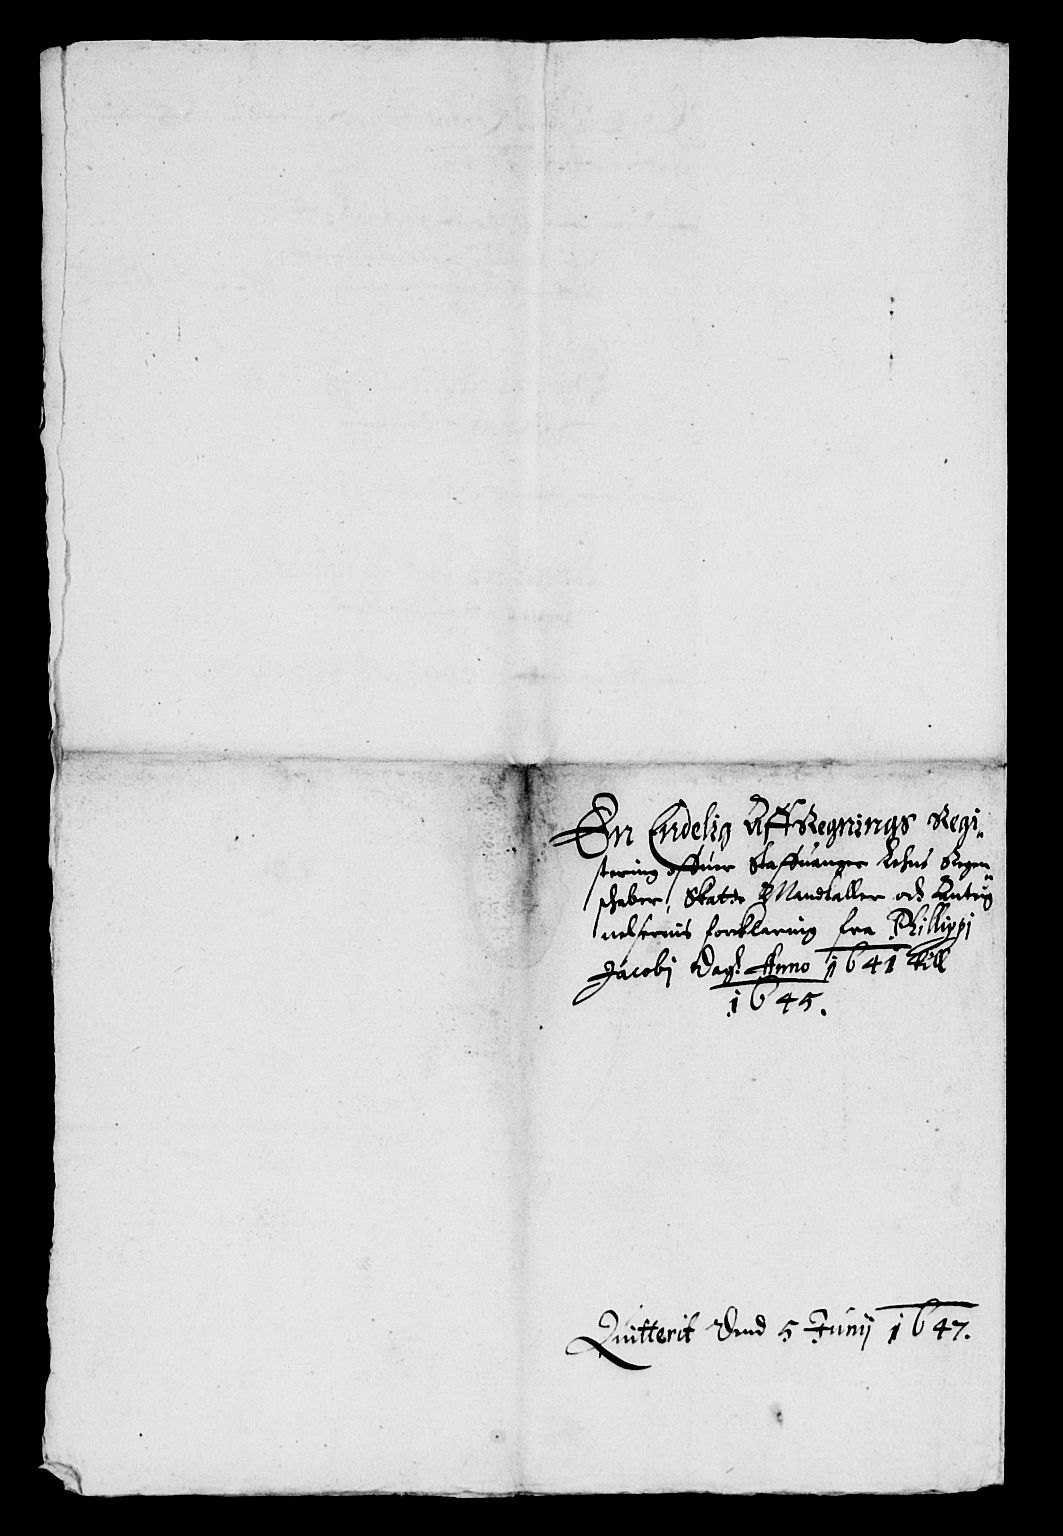 En Endelig Aff Regnings Regi-
stering offuer Staffuanger Lehns Regen-
schaber, Skatte Mandtaller och Anteg-
nelsernis forklaring fra Phillippi
Jacobj Dag: Anno 1641 till
1645.
Quitterit Dend 5 Junij 1647.